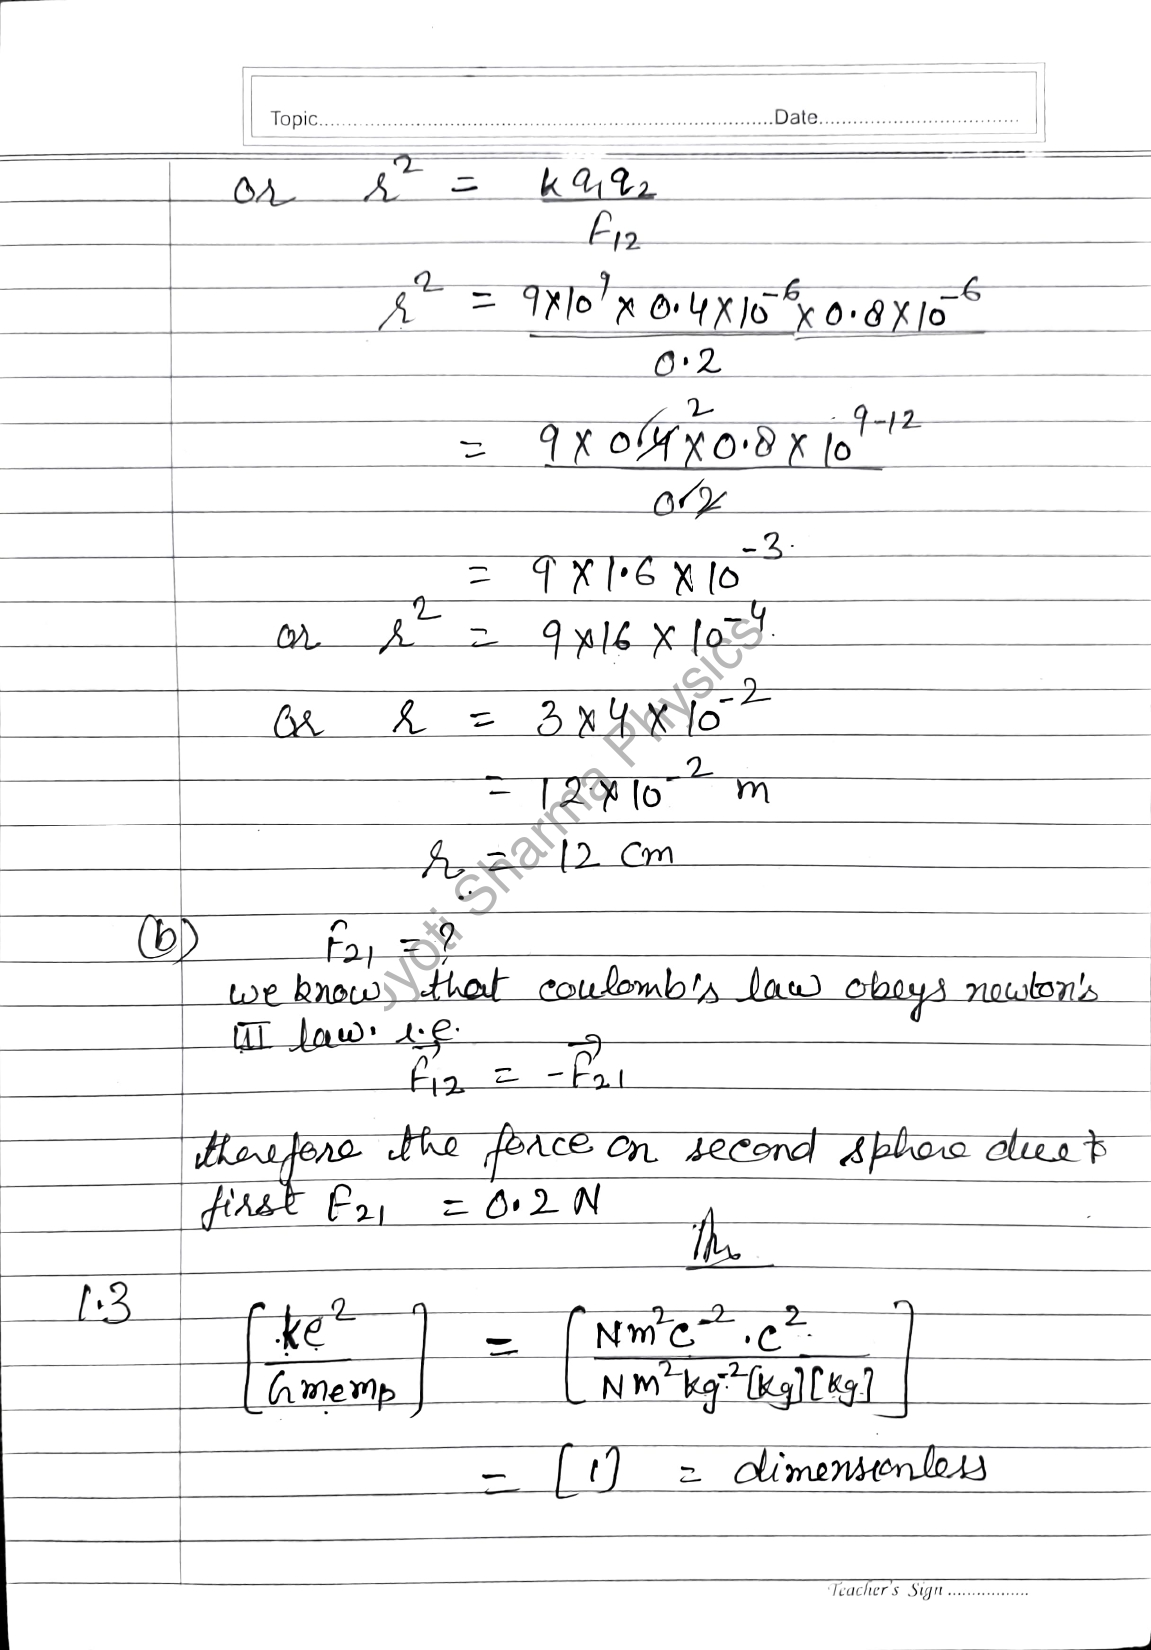 Topic..........Date..........
or r² = kq₁q₂ / F₁₂
r² = 9×10⁹ × 0.4×10⁻⁶ × 0.8×10⁻⁶ / 0.2
= 9 × 0.4 × 0.8 × 10⁹⁻¹² / 0.2
2
= 9 × 1.6 × 10⁻³
or r² = 9×16 × 10⁻⁴
or r = 3×4×10⁻²
= 12×10⁻² m
r = 12 cm
(b) F₂₁ = ?
we know that coulomb's law obeys newton's
III law. i.e.
F⃗₁₂ = -F⃗₂₁
therefore the force on second sphere due to
first F₂₁ = 0.2 N
1.3 [ke² / Gmemp] = [Nm²C⁻² . C² / Nm²kg⁻²[kg][kg]]
= [1] = dimensionless
Jyoti Sharma Physics
Teacher's Sign ..........